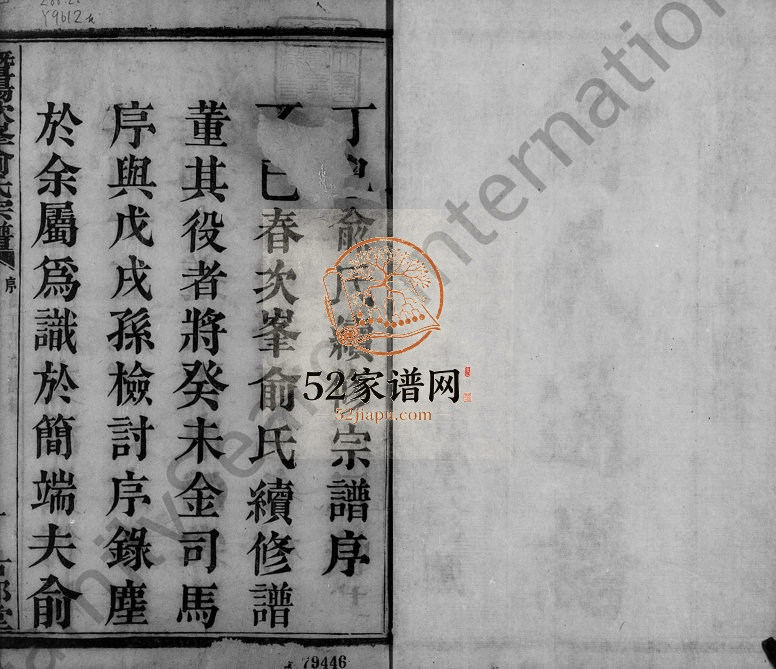 Y9612
丁巳俞氏續修宗譜序
丁巳春次峯俞氏續修譜
董其役者將癸未金司馬
序與戊戌孫檢討序錄塵
於余屬爲識於簡端夫俞
暨陽次峯俞氏宗譜
序
52家谱网
52jiapu.com
79446